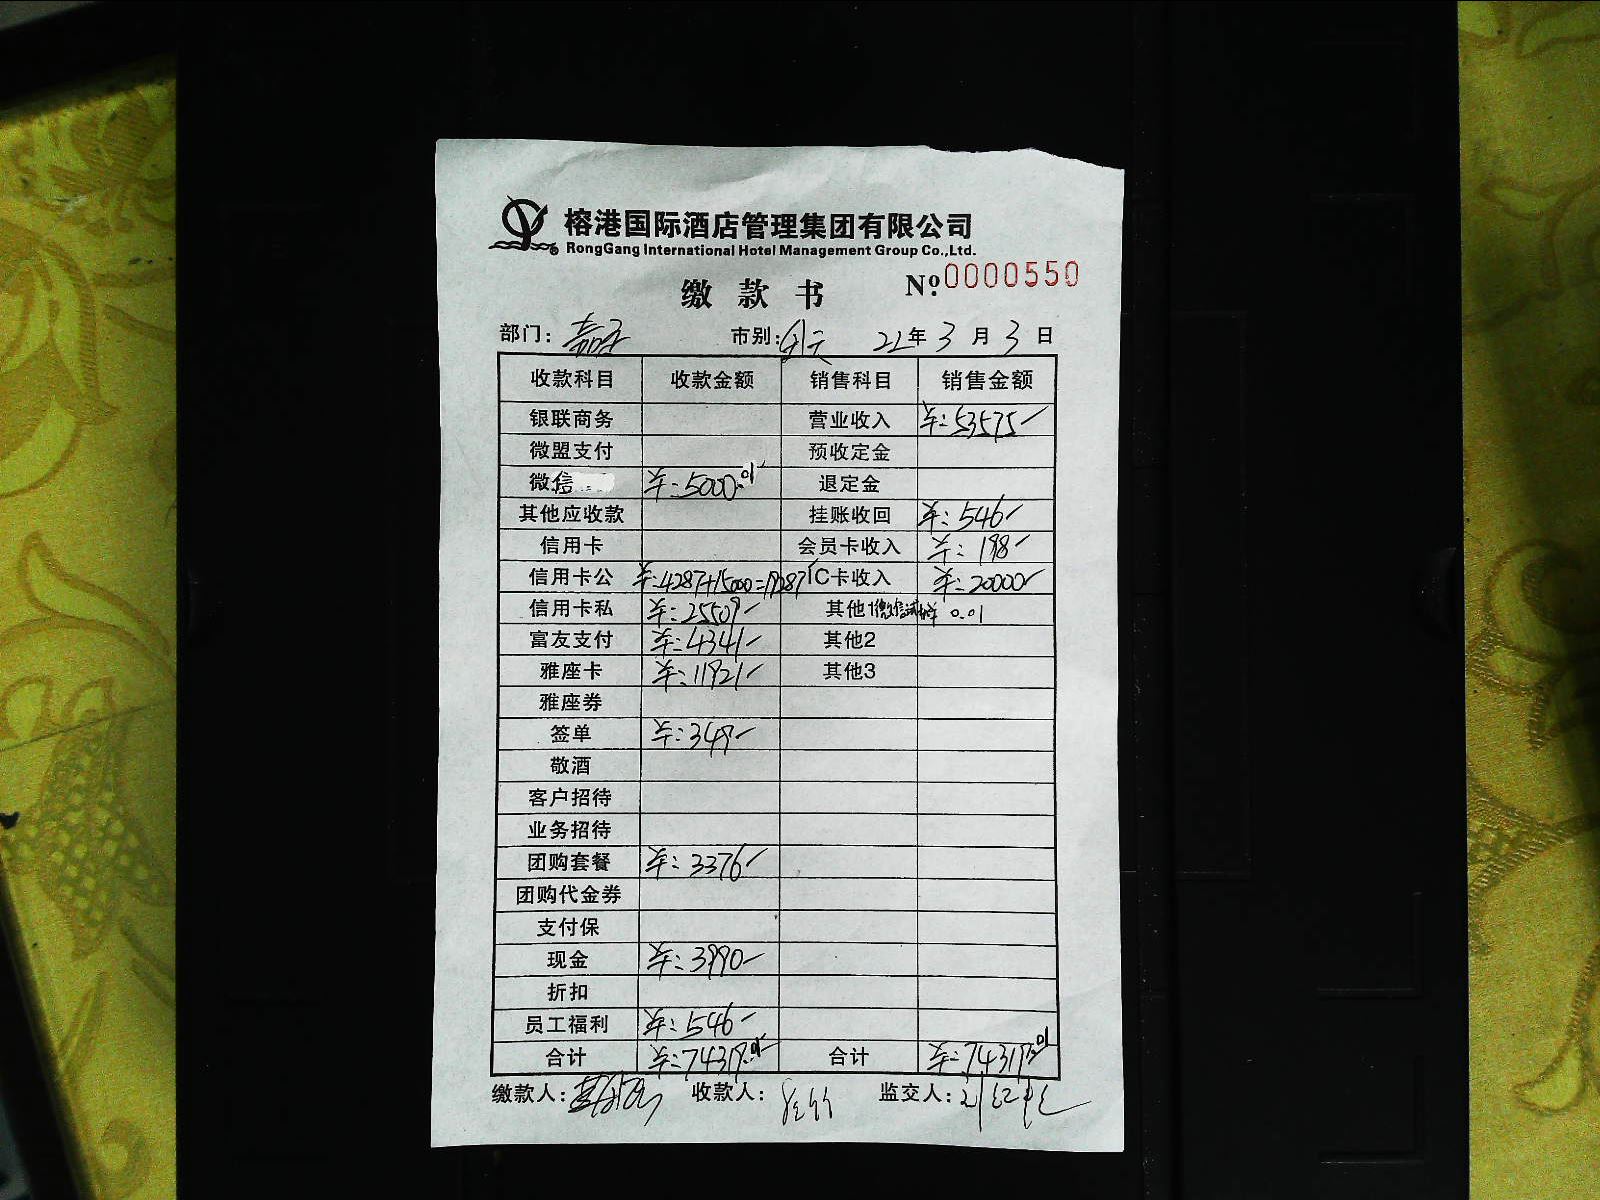 榕港国际酒店管理集团有限公司
RongGang International Hotel Management Group Co.,Ltd.
缴款书 №.0000550
部门: 市别: 22年3月3日
收款科目 收款金额 销售科目 销售金额
银联商务 营业收入 ¥:53575
微盟支付 预收定金
微信 ¥:5000.01 退定金
其他应收款 挂账收回 ¥:546
信用卡 会员卡收入 ¥:198
信用卡公 ¥:4287+15000=19287 IC卡收入 ¥:20000
信用卡私 ¥:25509 其他1 微信 0.01
富友支付 ¥:4341 其他2
雅座卡 ¥:11921 其他3
雅座券
签单 ¥:349
敬酒
客户招待
业务招待
团购套餐 ¥:3376
团购代金券
支付保
现金 ¥:3990
折扣
员工福利 ¥:546
合计 ¥:74319.01 合计 ¥:74319.01
缴款人: 收款人: 监交人: